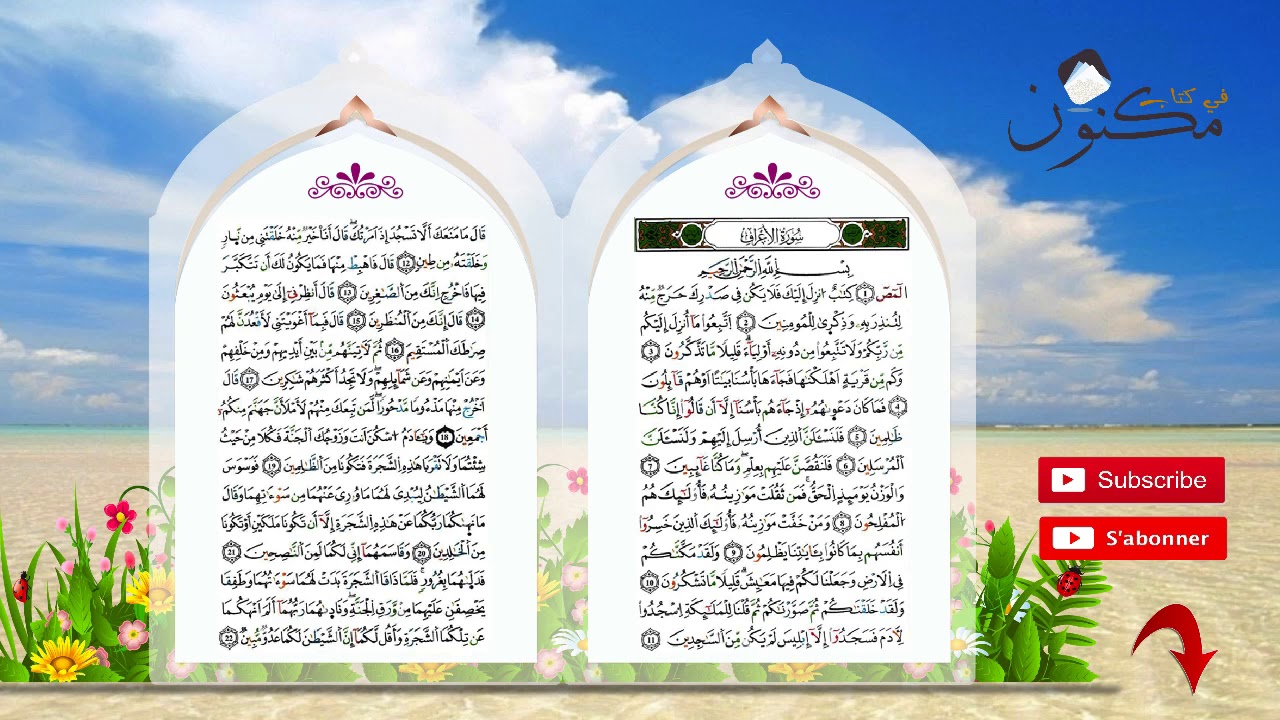 في كتاب
مكنون
سورة الأعراف
بسم الله الرحمن الرحيم
المص 1 كتب انزل إليك فلا يكن في صدرك حرج منه
لتنذر به وذكرى للمومنين 2 اتبعوا ما أنزل إليكم
من ربكم ولا تتبعوا من دونه أولياء قليلا ما تذكرون 3
وكم من قرية اهلكنها فجاءها بأسنا بيتا اوهم قايلون
4 فما كان دعويهم إذ جاءهم بأسنا إلا أن قالوا إنا كنا
ظلمين 5 فلنسئلن الذين أرسل إليهم ولنسئلن
المرسلين 6 فلنقصن عليهم بعلم وما كنا غايبين 7
والوزن يوميذ الحق فمن ثقلت موزينه فأولئك هم
المفلحون 8 ومن خفت موزينه فأولئك الذين خسروا
أنفسهم بما كانوا بـايتنا يظلمون 9 ولقد مكنكم
في الارض وجعلنا لكم فيها معيش قليلا ما تشكرون 10
ولقد خلقنكم ثم صورنكم ثم قلنا للمليكة اسجدوا
لادم فسجدوا إلا إبليس لم يكن من السجدين 11
قال ما منعك ألا تسجد إذ امرتك قال أنا خير منه خلقتني من نار
وخلقته من طين 12 قال فاهبط منها فما يكون لك أن تتكبر
فيها فاخرج انك من الصغرين 13 قال أنظرني إلى يوم يبعثون
14 قال إنك من المنظرين 15 قال فبما أغويتني لأقعدن لهم
صرطك المستقيم 16 ثم لأتينهم من بين أيديهم ومن خلفهم
وعن أيمنهم وعن شمايلهم ولا تجد أكثرهم شكرين 17 قال
اخرج منها مذءوما مدحورا لمن تبعك منهم لأملأن جهنم منكم
أجمعين 18 ويـادم اسكن انت وزوجك الجنة فكلا من حيث
شئتما ولا تقربا هذه الشجرة فتكونا من الظلمين 19 فوسوس
لهما الشيطن ليبدي لهما ما وري عنهما من سوءتهما وقال
ما نهيكما ربكما عن هذه الشجرة إلا أن تكونا ملكين أو تكونا
من الخلدين 20 وقاسمهما إني لكما لمن النصحين 21
فدليهما بغرور فلما ذاقا الشجرة بدت لهما سوءتهما وطفقا
يخصفن عليهما من ورق الجنة وناديهما ربهما ألم انهكما
عن تلكما الشجرة وأقل لكما إن الشيطن لكما عدو مبين 22
Subscribe
S'abonner